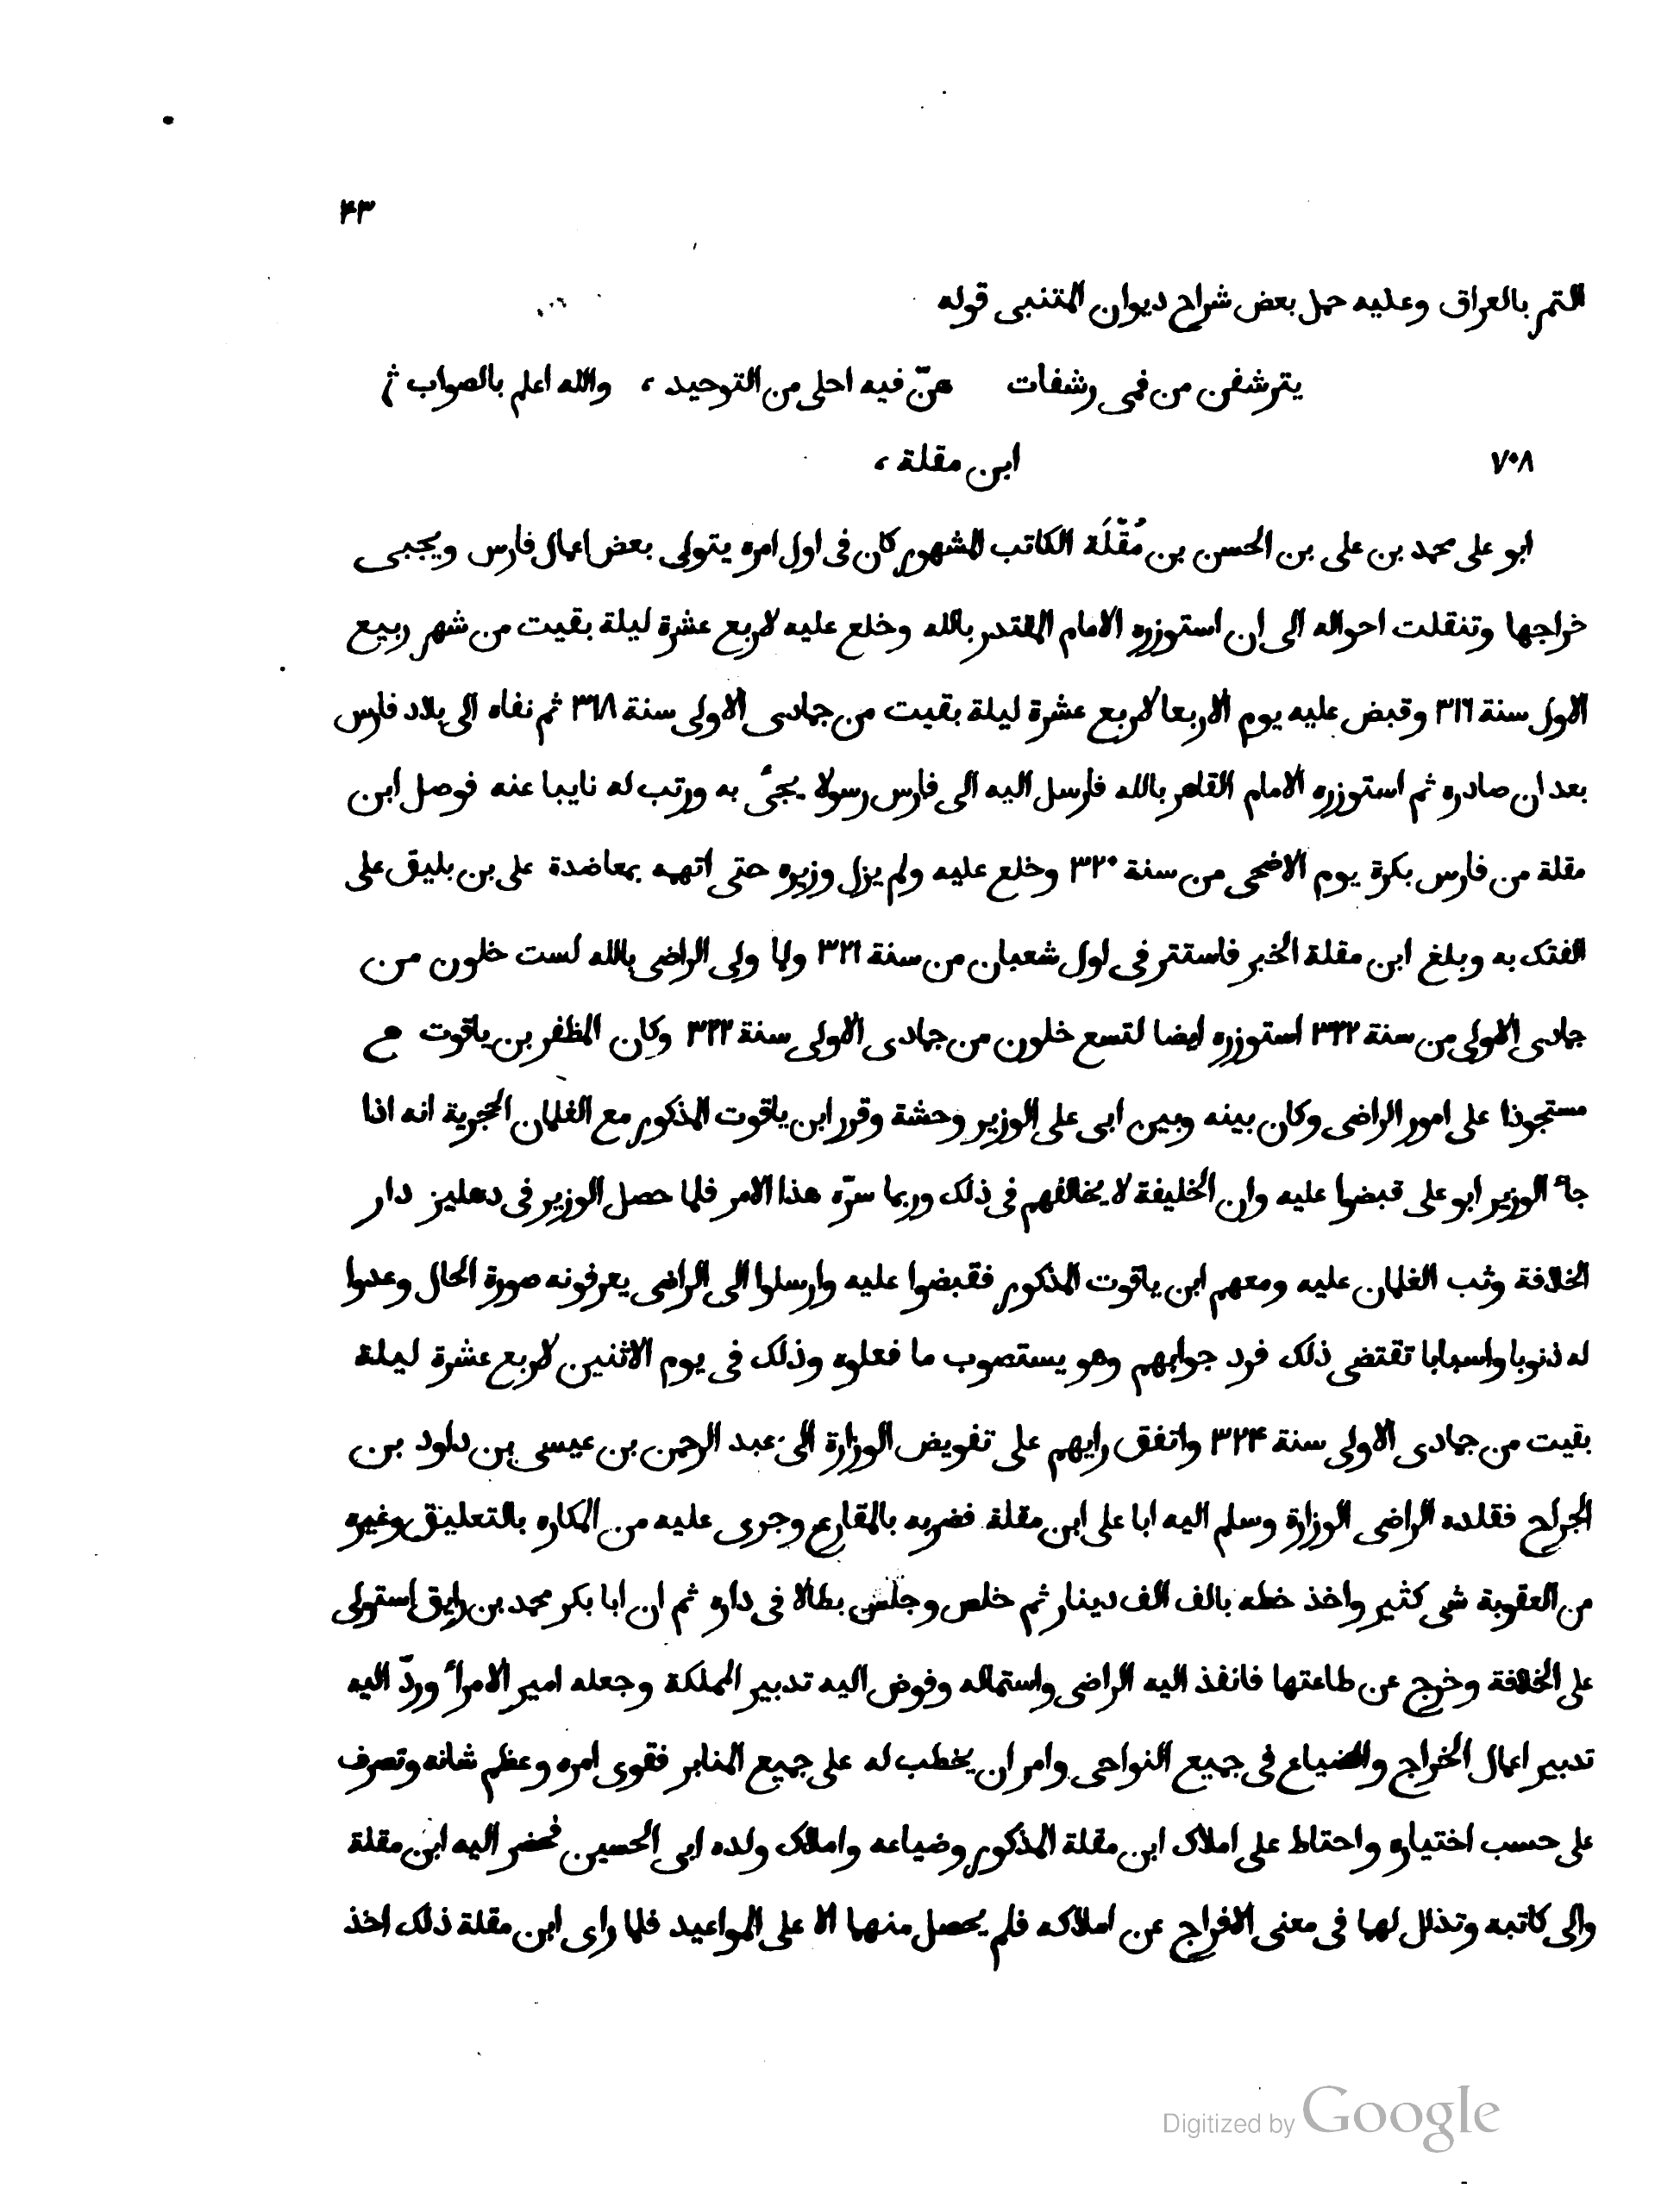 ۴۳
التمر بالعراق وعليه حمل بعض شراح ديوان المتنبى قوله
يترشفن من فمى رشفات هنّ فيه احلى من التوحيد، والله اعلم بالصواب
٧٠٨ ابن مقلة،
ابو على محمد بن على بن الحسن بن مُقْلَة الكاتب المشهور كان فى اول امره يتولى بعض اعمال فارس ويجبى
خراجها وتنقلت احواله الى ان استوزره الامام المقتدر بالله وخلع عليه لاربع عشرة ليلة بقيت من شهر ربيع
الاول سنة ٣١٦ وقبض عليه يوم الاربعا لاربع عشرة ليلة بقيت من جمادى الاولى سنة ٣١٨ ثم نفاه الى بلاد فارس
بعد ان صادره ثم استوزره الامام القاهر بالله فارسل اليه الى فارس رسولا يجىُ به ورتب له نايبا عنه فوصل ابن
مقلة من فارس بكرة يوم الاضحى من سنة ٣٢٠ وخلع عليه ولم يزل وزيره حتى اتهمه بمعاضدة على بن بليق على
الفتك به وبلغ ابن مقلة الخبر فاستتر فى اول شعبان من سنة ٣٢١ ولما ولى الراضى بالله لست خلون من
جمادى الاولى من سنة ٣٢٢ استوزره ايضا لتسع خلون من جمادى الاولى سنة ٣٢٢ وكان المظفر بن ياقوت
مستحوذا على امور الراضى وكان بينه وبين ابى على الوزير وحشة وقرر ابن ياقوت المذكور مع الغلمان الحجرية انه اذا
جاءَ الوزير ابو على قبضوا عليه وان الخليفة لا يخالفهم فى ذلك وربما سرّه هذا الامر فلما حصل الوزير فى دهليز دار
الخلافة وثب الغلمان عليه ومعهم ابن ياقوت المذكور فقبضوا عليه وارسلوا الى الراضى يعرفونه صورة الحال وعدوا
له ذنوبا واسبابا تقتضى ذلك فرد جوابهم وهو يستصوب ما فعلوه وذلك فى يوم الاثنين لاربع عشرة ليلة
بقيت من جمادى الاولى سنة ٣٢۴ واتفق رايهم على تفويض الوزارة الى عبد الرحمن بن عيسى بن داود بن
الجراح فقلده الراضى الوزارة وسلم اليه ابا على ابن مقلة فضربه بالمقارع وجرى عليه من المكاره بالتعليق وغيره
من العقوبة شى كثير واخذ خطه بالف الف دينار ثم خلص وجلس بطالا فى داره ثم ان ابا بكر محمد بن رايق استولى
على الخلافة وخرج عن طاعتها فانفذ اليه الراضى واستماله وفوض اليه تدبير المملكة وجعله امير الامراُ وردّ اليه
تدبير اعمال الخراج والضياع فى جميع النواحى وامر ان يخطب له على جميع المنابر فقوى امره وعظم شانه وتصرف
على حسب اختياره واحتاط على املاك ابن مقلة المذكور وضياعه واملاك ولده ابى الحسين فحضر اليه ابن مقلة
والى كاتبه وتذلل لهما فى معنى الافراج عن املاكه فلم يحصل منهما الا على المواعيد فلما راى ابن مقلة ذلك اخذ
Digitized by Google